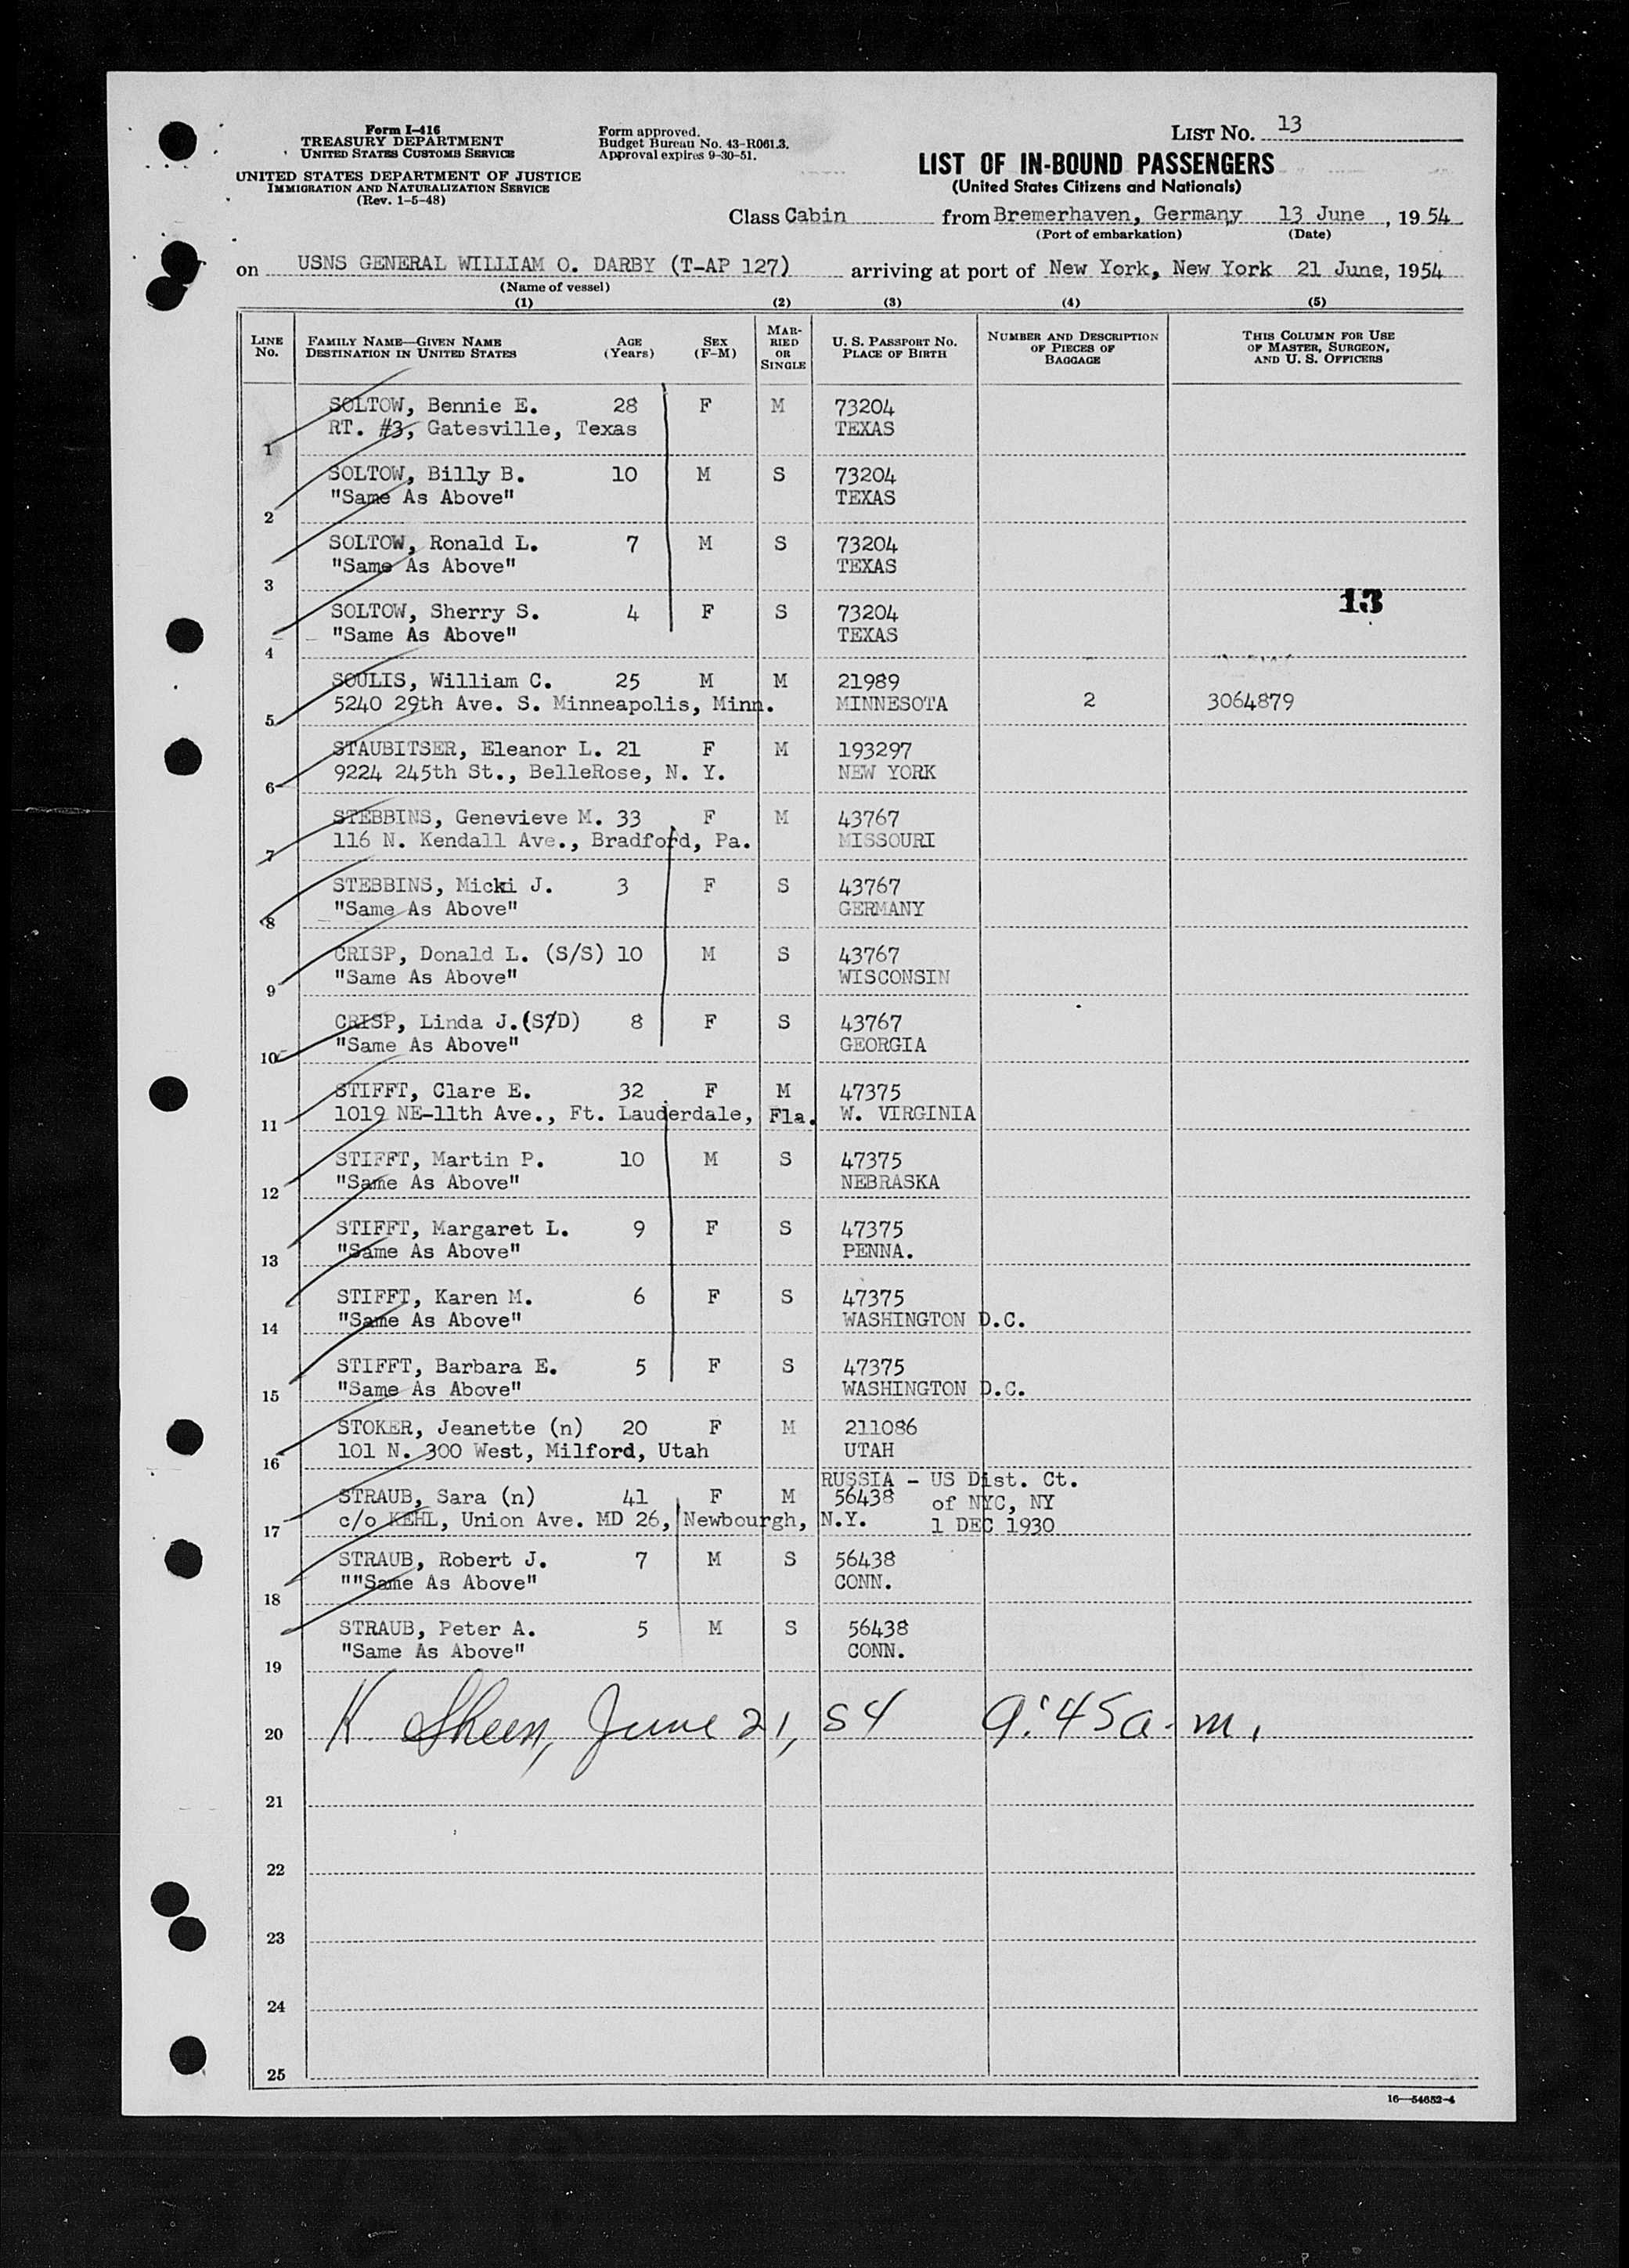 Form I-416
TREASURY DEPARTMENT
UNITED STATES CUSTOMS SERVICE
UNITED STATES DEPARTMENT OF JUSTICE
IMMIGRATION AND NATURALIZATION SERVICE
(Rev. 1-5-48)
Form approved.
Budget Bureau No. 43-R061.3.
Approval expires 9-30-51.
LIST No. 13
LIST OF IN-BOUND PASSENGERS
(United States Citizens and Nationals)
Class Cabin from Bremerhaven, Germany 13 June, 1954
(Port of embarkation) (Date)
on USNS GENERAL WILLIAM O. DARBY (T-AP 127) arriving at port of New York, New York 21 June, 1954
(Name of vessel)
(1) (2) (3) (4) (5)
LINE No. FAMILY NAME—GIVEN NAME DESTINATION IN UNITED STATES AGE (Years) SEX (F-M) MARRIED OR SINGLE U. S. PASSPORT No. PLACE OF BIRTH NUMBER AND DESCRIPTION OF PIECES OF BAGGAGE THIS COLUMN FOR USE OF MASTER, SURGEON, AND U. S. OFFICERS
SOLTOW, Bennie E. 28 F M 73204
RT. #3, Gatesville, Texas TEXAS
1
SOLTOW, Billy B. 10 M S 73204
"Same As Above" TEXAS
2
SOLTOW, Ronald L. 7 M S 73204
"Same As Above" TEXAS
3
13
SOLTOW, Sherry S. 4 F S 73204
"Same As Above" TEXAS
4
SOULIS, William C. 25 M M 21989
5240 29th Ave. S. Minneapolis, Minn. MINNESOTA 2 3064879
5
STAUBITSER, Eleanor L. 21 F M 193297
9224 245th St., BelleRose, N. Y. NEW YORK
6
STEBBINS, Genevieve M. 33 F M 43767
116 N. Kendall Ave., Bradford, Pa. MISSOURI
7
STEBBINS, Micki J. 3 F S 43767
"Same As Above" GERMANY
8
CRISP, Donald L. (S/S) 10 M S 43767
"Same As Above" WISCONSIN
9
CRISP, Linda J.(S/D) 8 F S 43767
"Same As Above" GEORGIA
10
STIFFT, Clare E. 32 F M 47375
1019 NE-11th Ave., Ft. Lauderdale, Fla. W. VIRGINIA
11
STIFFT, Martin P. 10 M S 47375
"Same As Above" NEBRASKA
12
STIFFT, Margaret L. 9 F S 47375
"Same As Above" PENNA.
13
STIFFT, Karen M. 6 F S 47375
"Same As Above" WASHINGTON D.C.
14
STIFFT, Barbara E. 5 F S 47375
"Same As Above" WASHINGTON D.C.
15
STOKER, Jeanette (n) 20 F M 211086
101 N. 300 West, Milford, Utah UTAH
16
RUSSIA - US Dist. Ct.
STRAUB, Sara (n) 41 F M 56438 of NYC, NY
c/o KEHL, Union Ave. MD 26, Newbourgh, N.Y. 1 DEC 1930
17
STRAUB, Robert J. 7 M S 56438
""Same As Above" CONN.
18
STRAUB, Peter A. 5 M S 56438
"Same As Above" CONN.
19
K. Sheen, June 21, 54 9:45 a.m.
20
21
22
23
24
25
16—54652-4